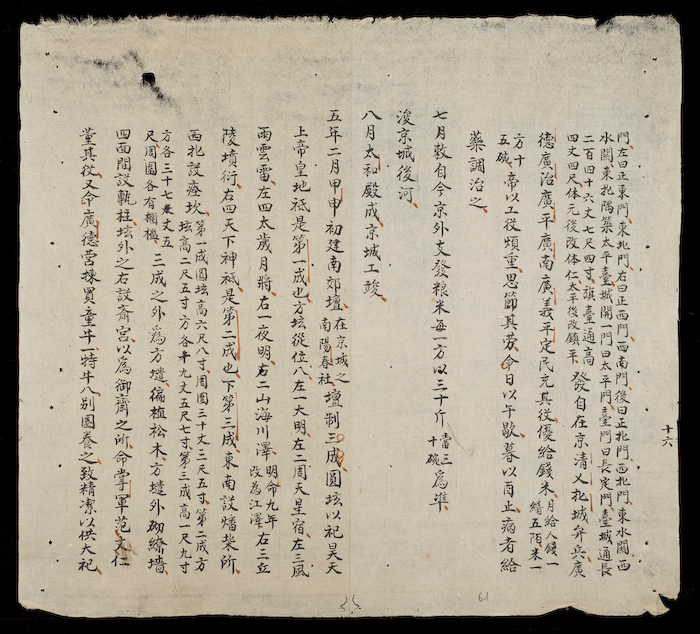 十六
門左曰正東門東北門右曰正西門西南門後曰正北門西北門東水關西
水關東北隅築太平臺城開一門曰太平門臺門曰長定門臺城通長
二百四十六丈七尺四寸旗臺一通高
四丈四尺体元後改体仁太平後改鎮平
發自在京清乂北城弁兵廣
德廣治廣平廣南廣義平定民兀具役優給錢米
月給人錢一
緡五陌米一
方十
五碗
帝以工役煩重思節其勞命日以午歇暮以酉止病者給
藥調治之
七月敕自今京外支發粮米每一方以三十斤
當三
十碗
為準
浚京城後河
八月太和殿成京城工竣
五年二月甲申初建南郊壇
在京城之
南陽春社
壇制三成圓坛以祀昊天
上帝皇地祇是第一成也方坛從位八左一大明左二周天星宿左三風
雨雲雷左四太歲月將右一夜明右二山海川澤
明命九年
改為江澤
右三丘
陵墳衍右四天下神祇是第二成也下第三成東南設燔柴所
西北設瘞坎
第一成圓坛高六尺八寸周圍三十丈三尺五寸第二成方
坛高二尺五寸方各九丈五尺七寸第三成高一尺九寸
方各三十七丈五
尺周圍各有欄檻
三成之外為方壝徧植松木方壝外砌繚墻
四面間設執柱坛外之右設斎宮以為御齋之所命掌軍范文仁
董其役又命廣德營採買童牛一特牛八別圈養之致精潔以供大祀
61